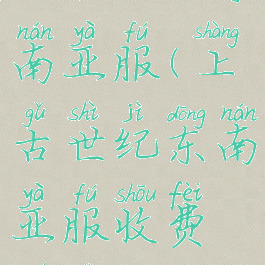 nán yà fú shàng
南亚服(上
gǔ shì jì dōng nán
古世纪东南
yà fú shōu fèi
亚服收费